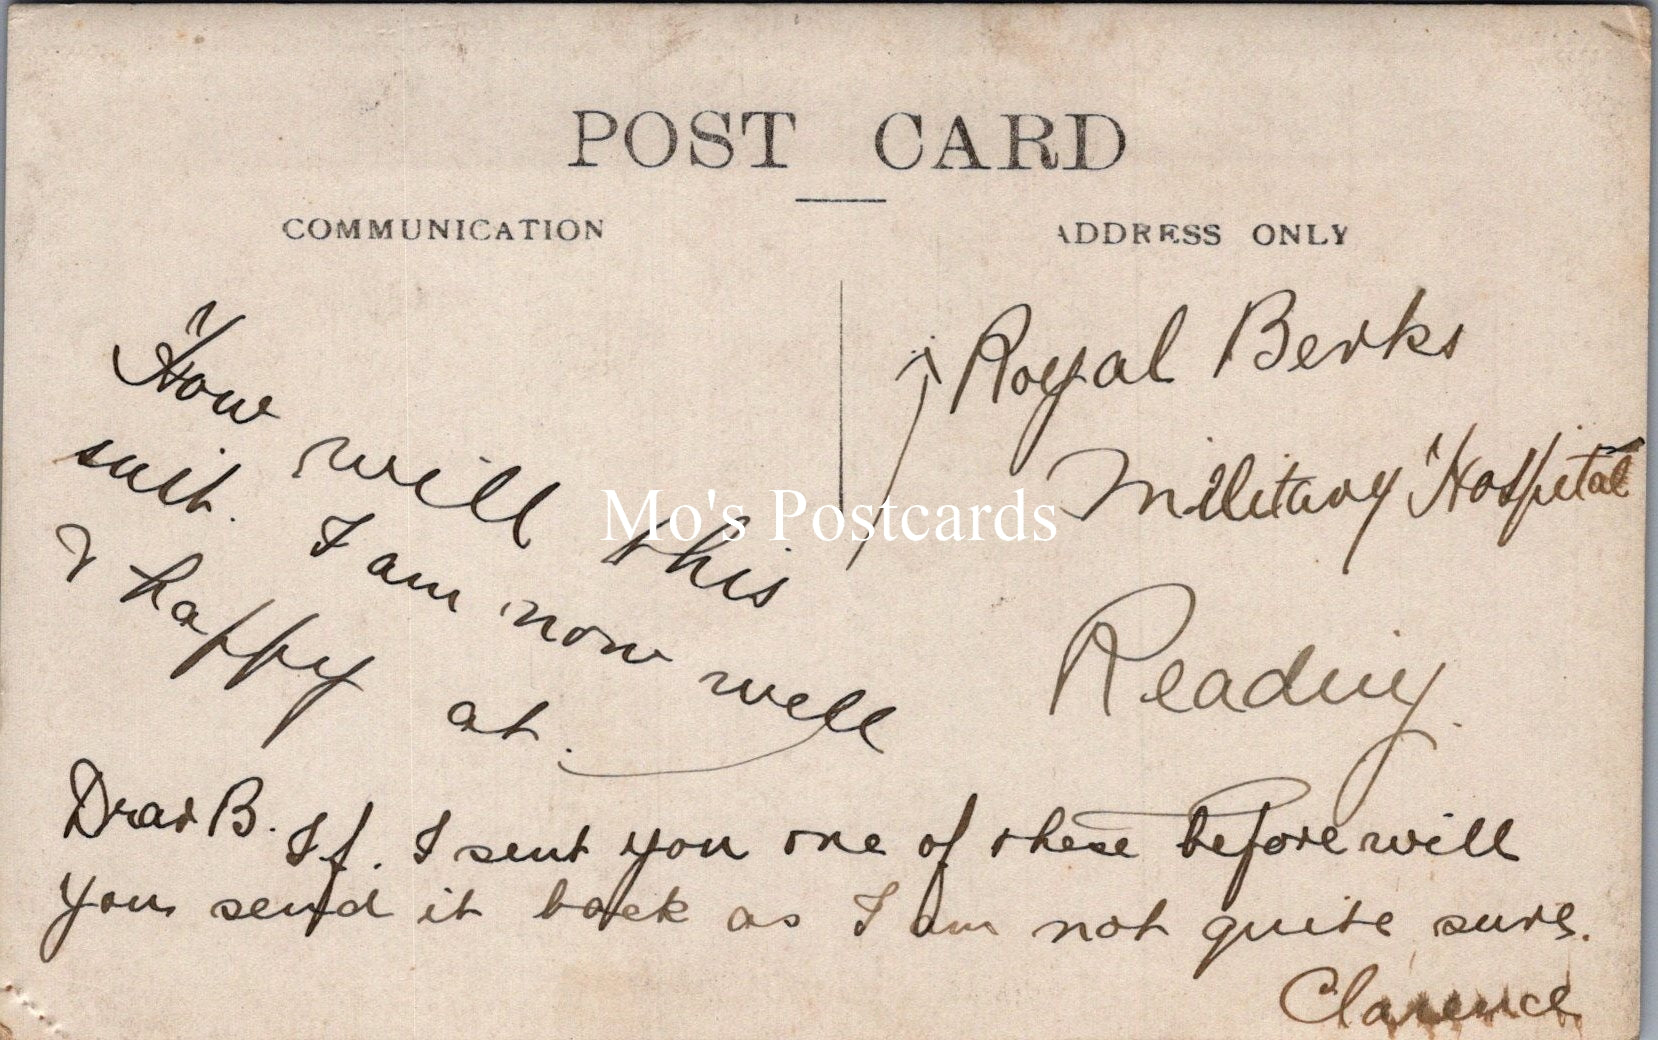 POST CARD
COMMUNICATION
ADDRESS ONLY
How will this
suit. I am now well
& happy at.
Royal Berks
Military Hospital
Reading.
Dear B. If. I sent you one of these before will
you send it back as I am not quite sure.
Clarence
Mo's Postcards